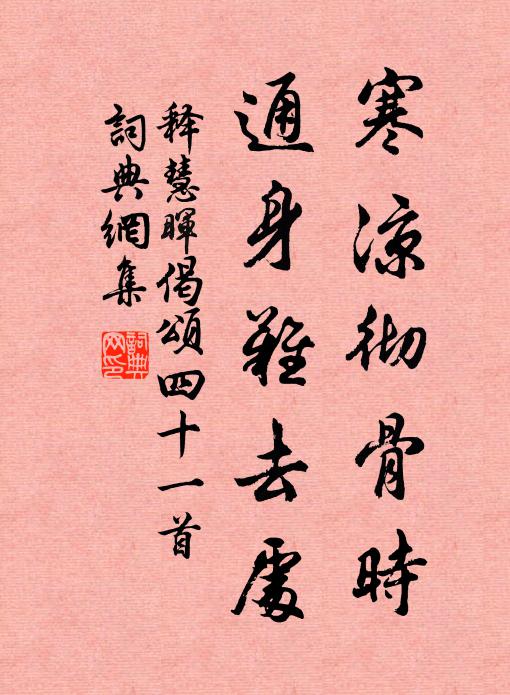 寒涼彻骨時
通身難去處
释慧暉偈頌四十一首
詞典網集
詞典
网印